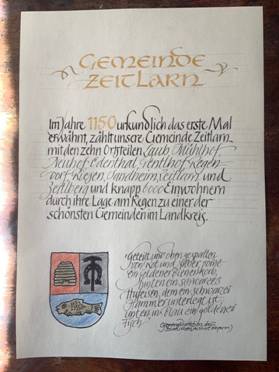 GEMEINDE
ZEITLARN
Im Jahre 1150 urkundlich das erste Mal
erwähnt, zählt unsere Gemeinde Zeitlarn
mit den zehn Ortsteilen Laub, Mühlhof
Neuhof, Ödenthal, Pentlhof, Regen-
dorf, Regen, Sandheim, Zeitlarn und
Zeitlberg und knapp 6000 Einwohnern
durch ihre Lage am Regen zu einer der
schönsten Gemeinden im Landkreis.
Geteilt und oben gespalten
von Rot und Silber, vorne
ein goldener Bienenkorb,
hinten ein schwarzes
Hufeisen, dem ein schwarzer
Hammer unterlegt ist,
unten in Blau ein goldener
Fisch